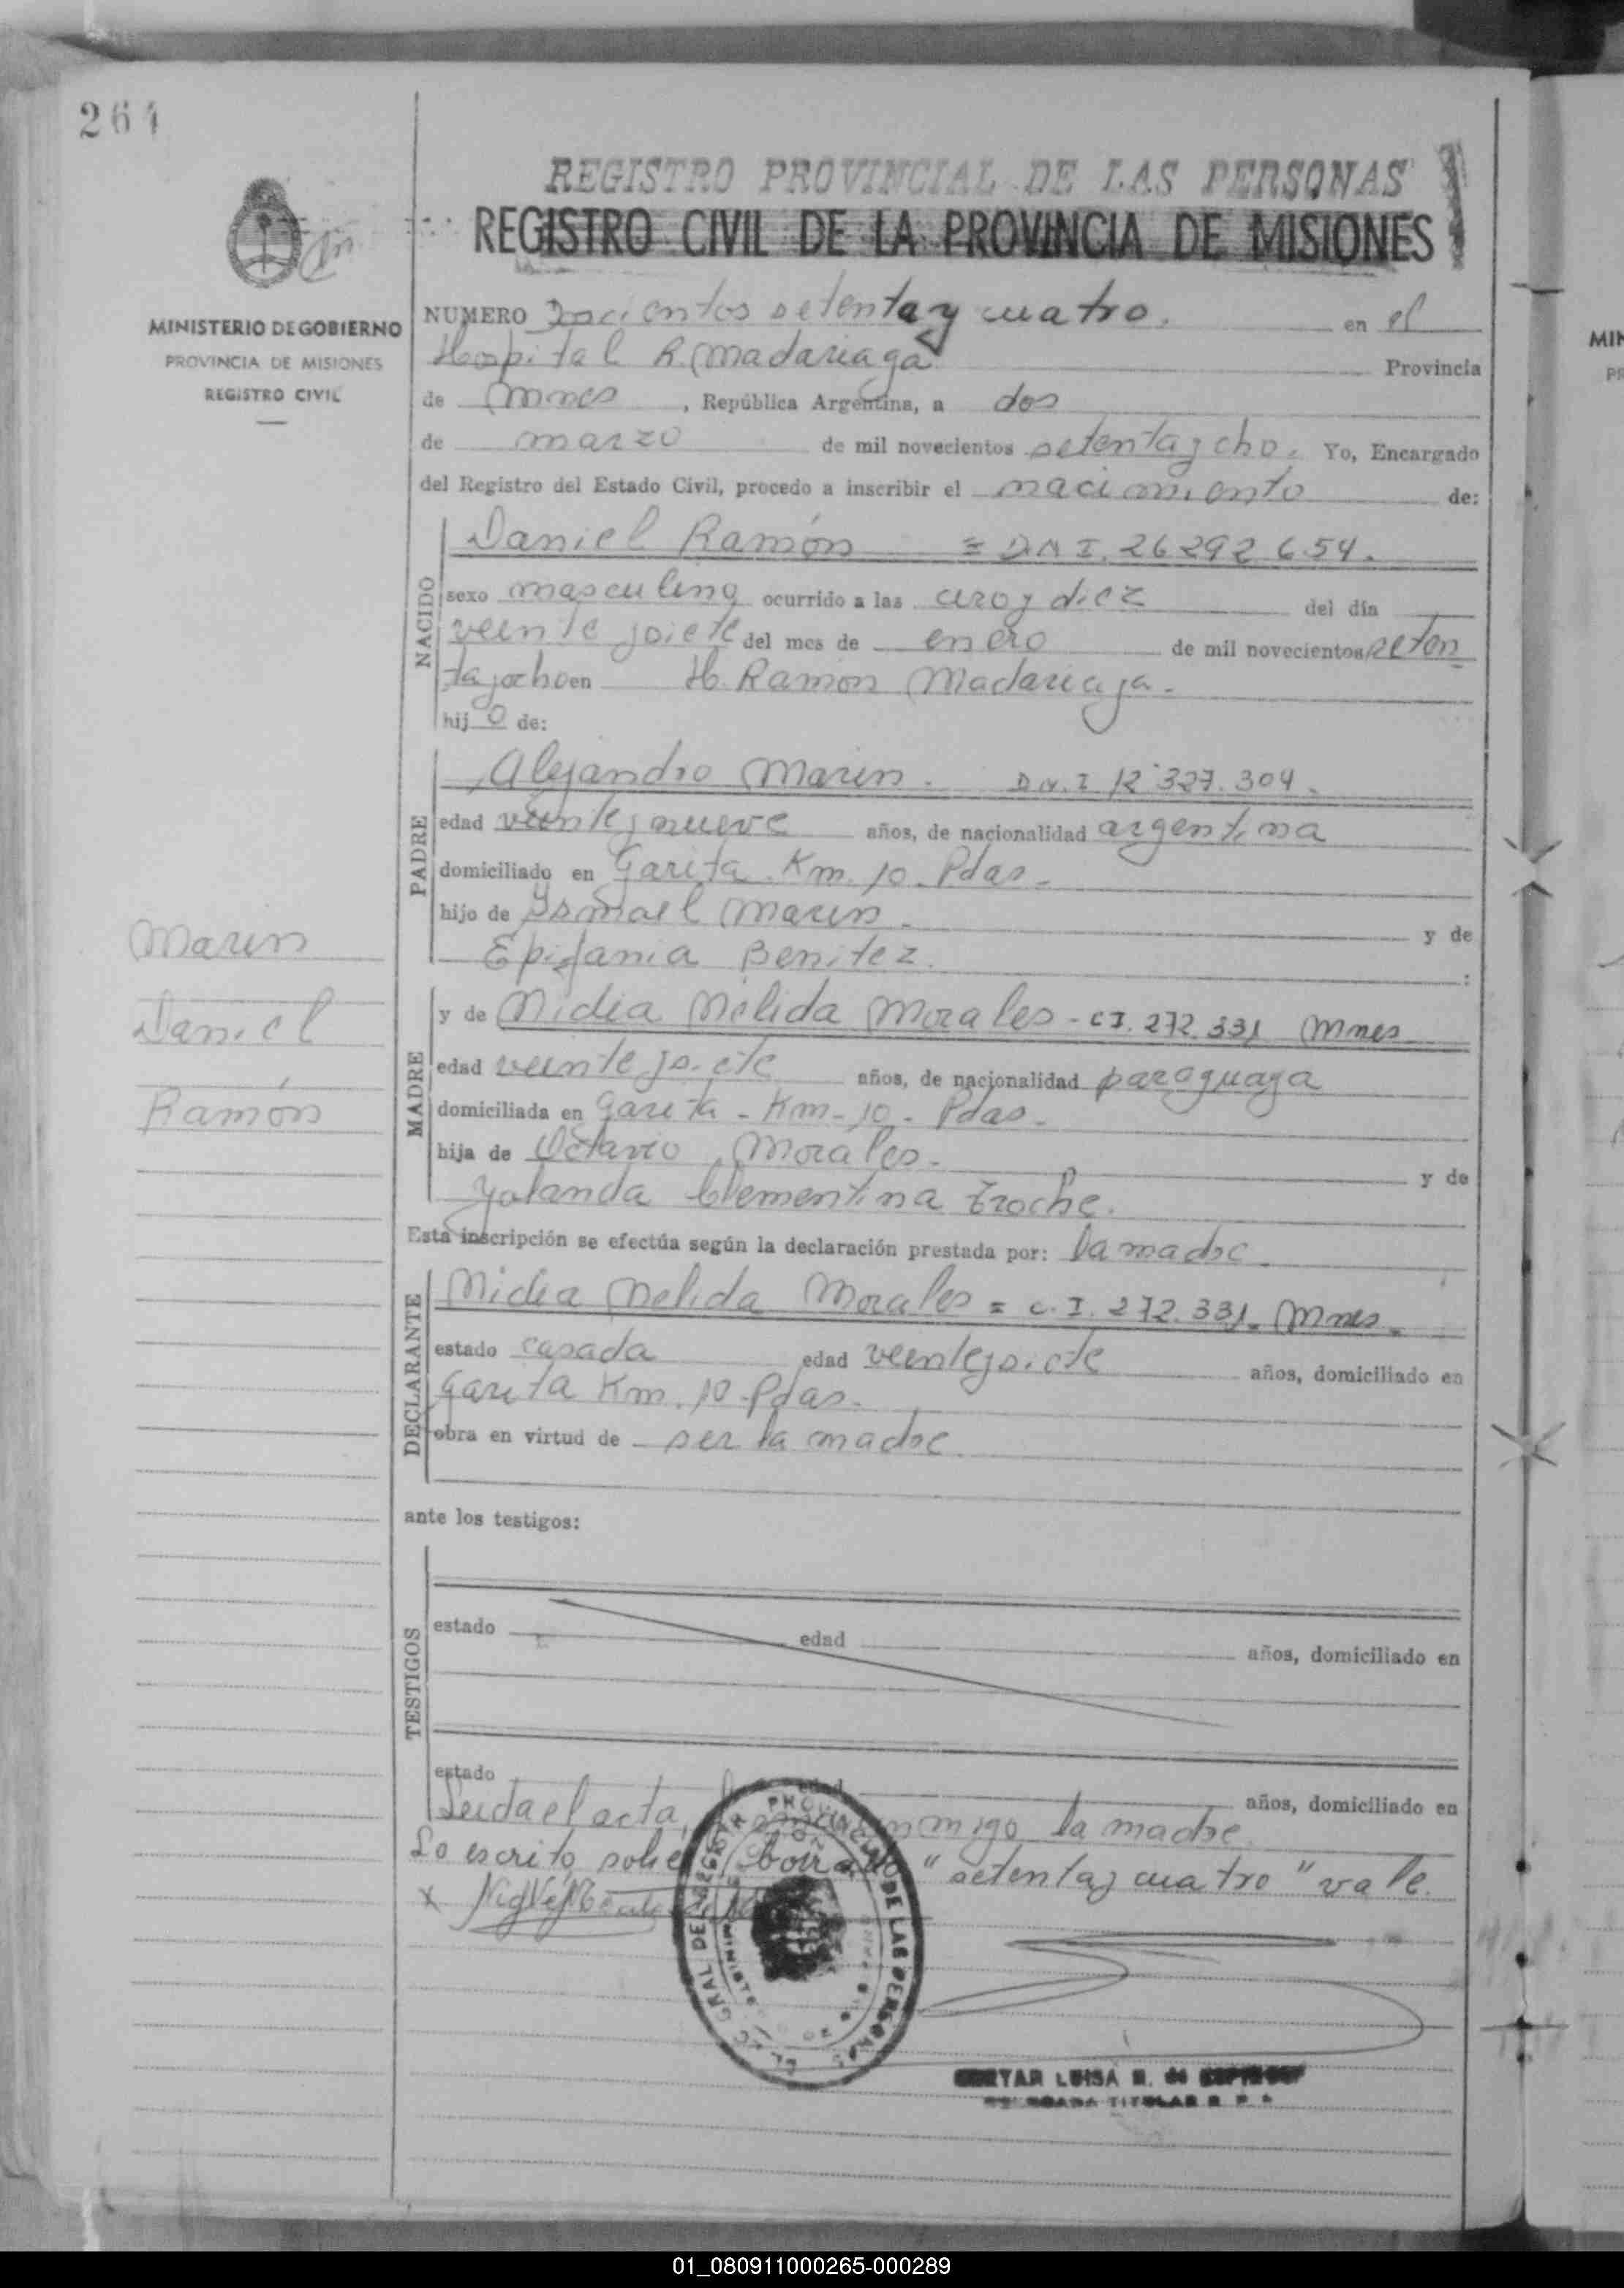 264
REGISTRO PROVINCIAL DE LAS PERSONAS
REGISTRO CIVIL DE LA PROVINCIA DE MISIONES
MINISTERIO DE GOBIERNO
PROVINCIA DE MISIONES
REGISTRO CIVIL
NUMERO Doscientos setenta y cuatro. en el
Hospital R. Madariaga Provincia
de Mnes, República Argentina, a dos
de marzo de mil novecientos setentayocho. Yo, Encargado
del Registro del Estado Civil, procedo a inscribir el nacimiento de:
NACIDO
Daniel Ramón = D.N.I. 26292654.
sexo masculino ocurrido a las cero y diez del día
veinte y siete del mes de enero de mil novecientos seten
ta y ocho en H. Ramon Madariaga.
hij o de:
PADRE
Alejandro Marin. D.N.I 12.327.304.
edad veinte y nueve años, de nacionalidad argentina
domiciliado en Garita. Km. 10. Pdas.
hijo de Ysmael Marin. y de
Epifania Benitez. :
Marin
Daniel
Ramón
MADRE
y de Nidia Nélida Morales - C.I. 272.331 Mnes
edad veinte y siete años, de nacionalidad paraguaya
domiciliada en Garita - Km - 10 - Pdas.
hija de Octavio Morales. y de
Yolanda Clementina Troche.
Esta inscripción se efectúa según la declaración prestada por: la madre.
DECLARANTE
Nidia Nelida Morales = C.I. 272.331. Mnes.
estado casada edad veinte y siete años, domiciliado en
Garita Km. 10. Pdas.
obra en virtud de ser la madre.
ante los testigos:
TESTIGOS
estado edad años, domiciliado en
estado edad años, domiciliado en
Leida el acta, conmigo la madre.
Lo escrito sobre borrado "setenta y cuatro" vale.
x
LUISA
TITULAR
MIN
01_080911000265-000289